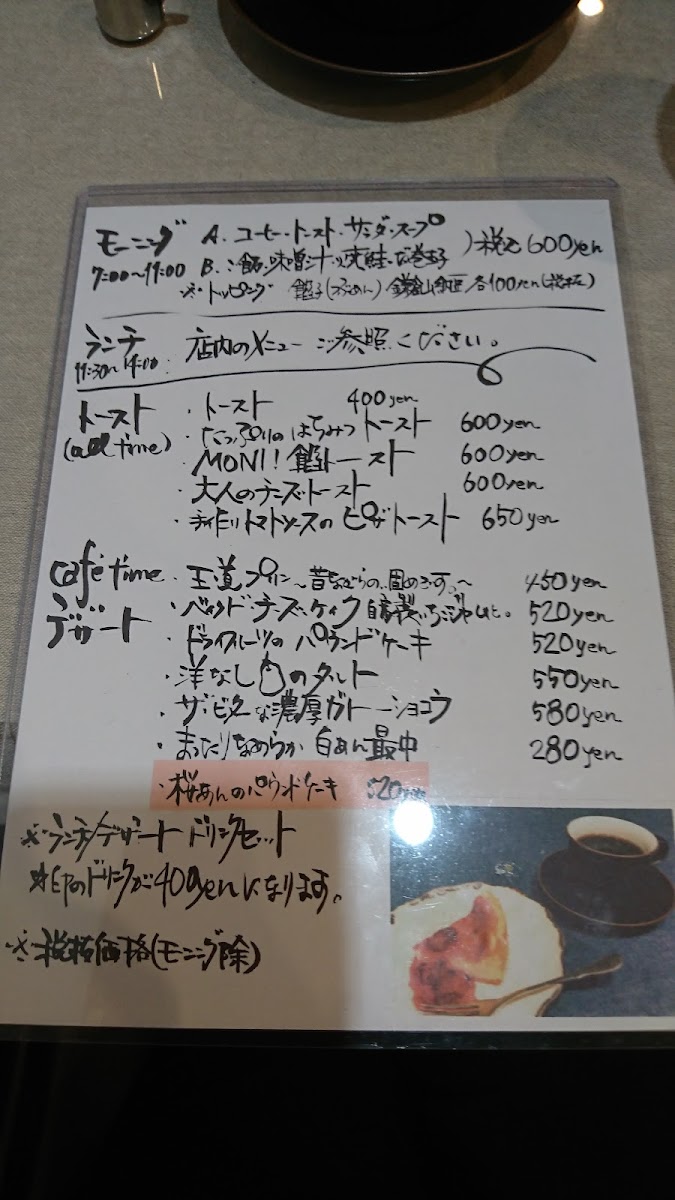 モーニング A. コーヒー・トースト・サラダ・スープ
7:00〜11:00 B. ご飯・味噌汁・焼鮭・だし巻玉子 )税込600yen
※トッピング 餡子(つぶあん) 各100yen(税抜)
ランチ 店内のメニューご参照ください。
11:30〜14:00
トースト ・トースト 400yen
(all time) ・たっぷりのはちみつトースト 600yen
・MONI!餡トースト 600yen
・大人のチーズトースト 600yen
・手作りトマトソースのピザトースト 650yen
Cafe time ・王道プリン〜昔ながらの..固めでーす。〜 450yen
デザート ・ベイクドチーズケイク 自家製いちごジャムと。 520yen
・ドライフルーツのパウンドケーキ 520yen
・洋なしのタルト 550yen
・ザ・ビターな濃厚ガトーショコラ 580yen
・まったりなめらか 白あん最中 280yen
・桜あんのパウンドケーキ 520yen
※ランチ/デザート ドリンクセット
印のドリンクが400yenになります。
※税抜価格(モーニング除)